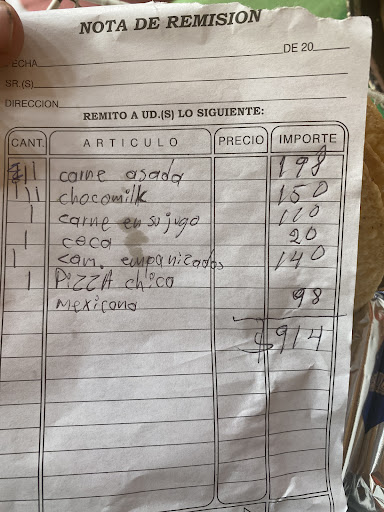 NOTA DE REMISION
ECHA DE 20
SR.(S)
DIRECCION
REMITO A UD.(S) LO SIGUIENTE:
CANT. ARTICULO PRECIO IMPORTE
carne asada 198
111 chocomilk 150
1 carne en su jugo 110
1 coca 20
1 cam. empanizados 140
1 PIZZA chica
mexicana 98
$914